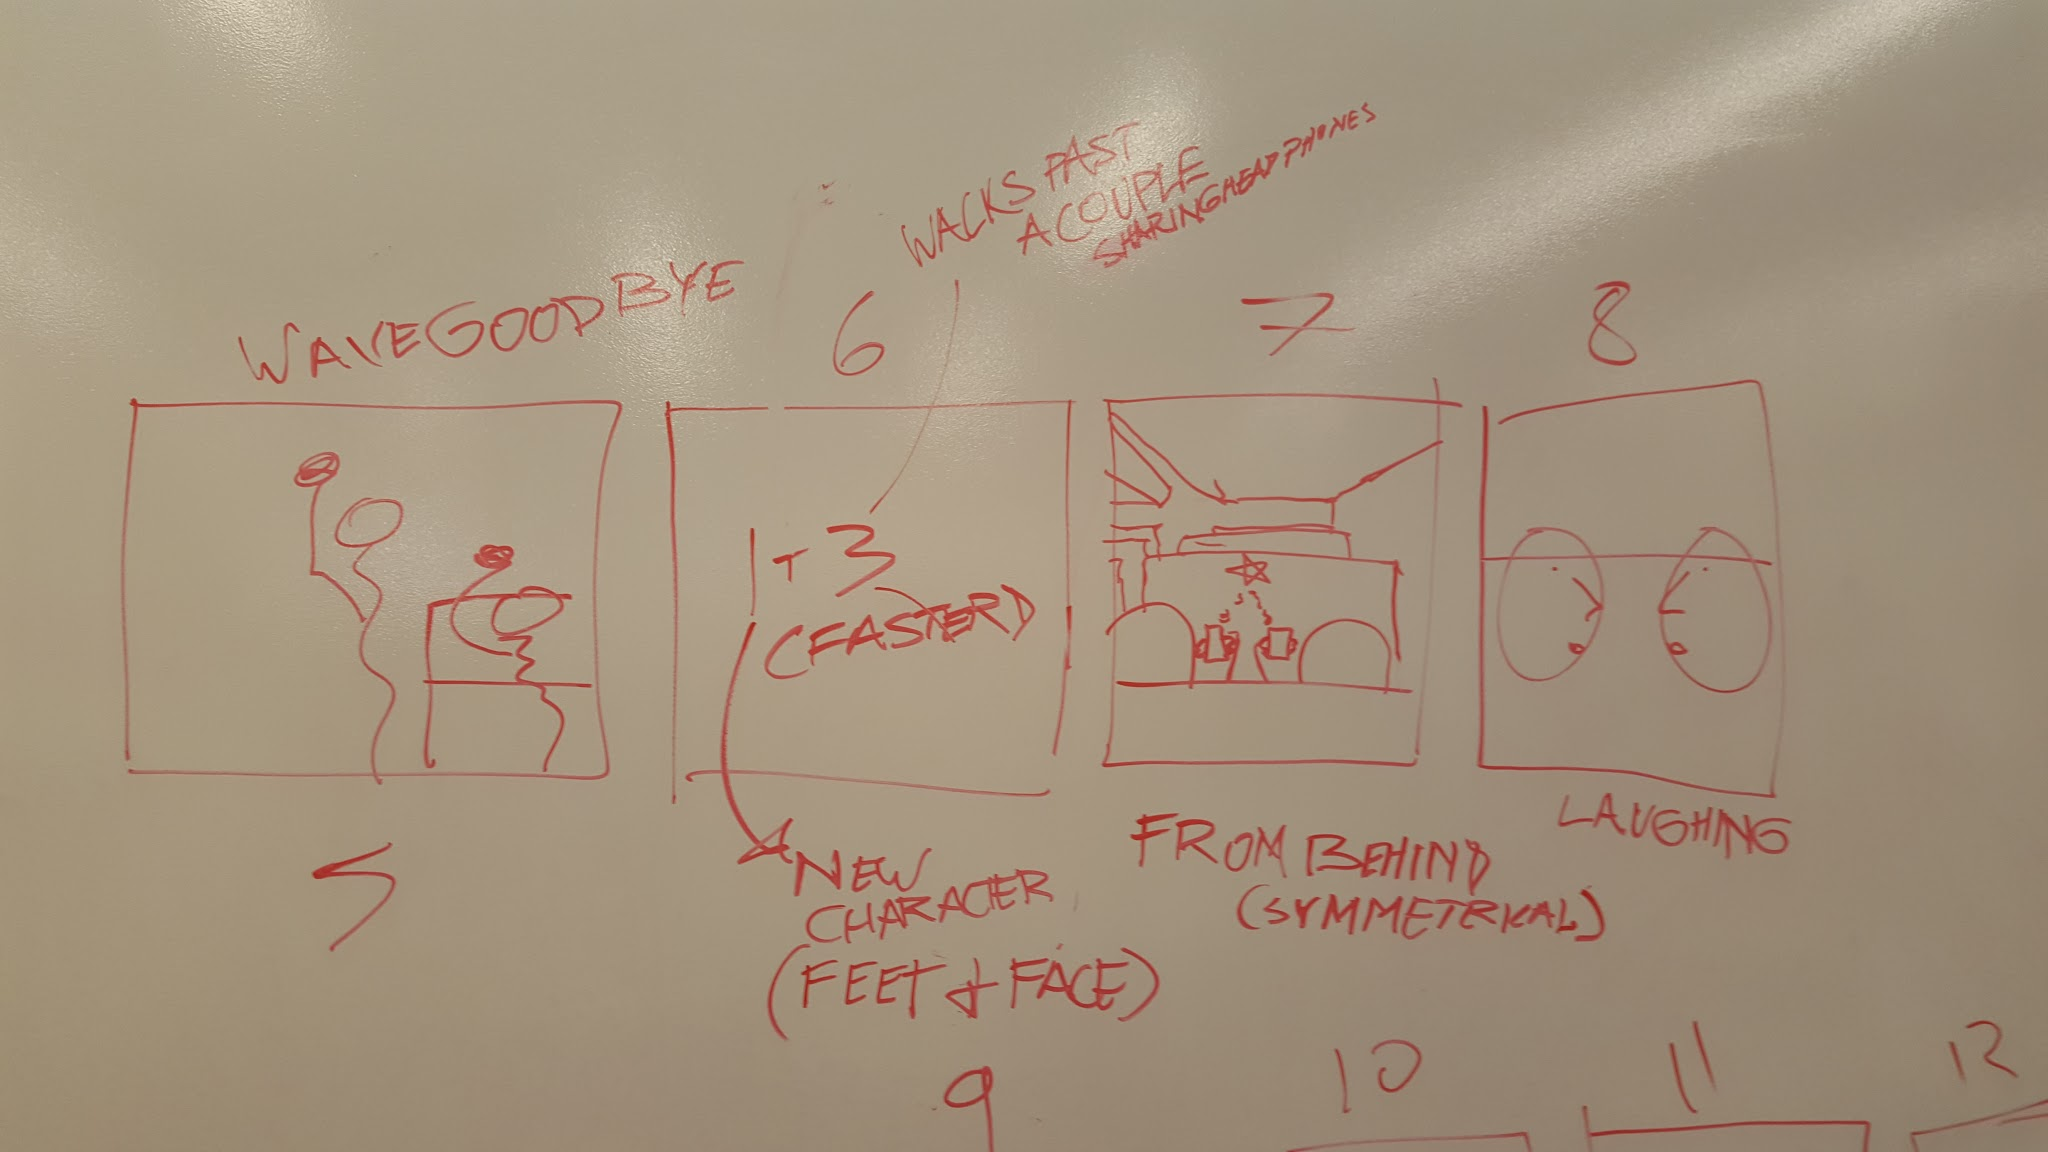 WAVE GOODBYE
5
6
WALKS PAST
A COUPLE
SHARING HEADPHONES
1+3
(FASTER)
NEW
CHARACTER
(FEET + FACE)
7
FROM BEHIND
(SYMMETRICAL)
8
LAUGHING
9
10
11
12